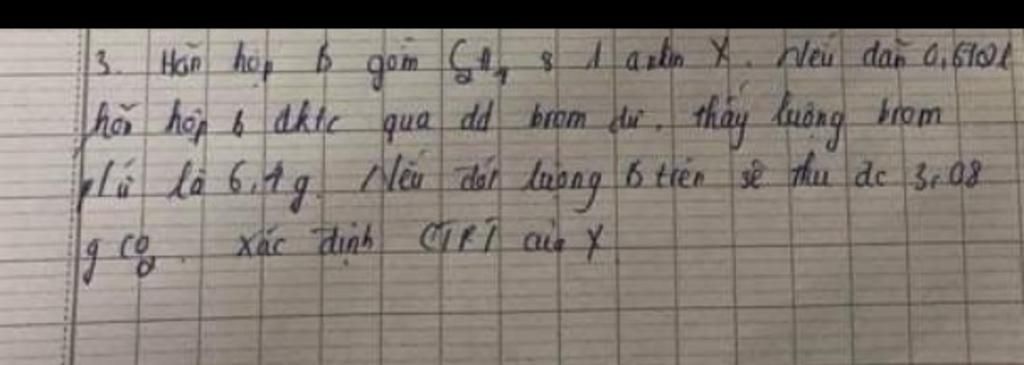 3. Hỗn hợp B gồm C2H4 & 1 ankin X. Nếu dẫn
hỗn hợp B đktc qua dd brom dư. thấy lượng brom
pứ là 6,4g. Nếu đốt lượng B trên sẽ thu đc 3,08
g CO2. xác định CTPT của X